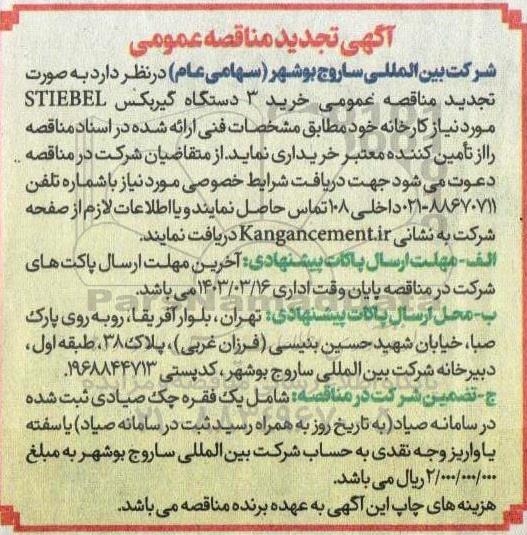 آگهی تجدید مناقصه عمومی
شرکت بین المللی ساروج بوشهر (سهامی عام) در نظر دارد به صورت
تجدید مناقصه عمومی خرید ۳ دستگاه گیربکس STIEBEL
مورد نیاز کارخانه خود مطابق مشخصات فنی ارائه شده در اسناد مناقصه
را از تأمین کننده معتبر خریداری نماید. از متقاضیان شرکت در مناقصه
دعوت می شود جهت دریافت شرایط خصوصی مورد نیاز با شماره تلفن
۰۲۱-۸۸۶۷۰۷۱۱ داخلی ۱۰۸ تماس حاصل نمایند و یا اطلاعات لازم از صفحه
شرکت به نشانی Kangancement.ir دریافت نمایند.
الف- مهلت ارسال پاکات پیشنهادی: آخرین مهلت ارسال پاکت های
شرکت در مناقصه پایان وقت اداری ۱۴۰۳/۰۳/۱۶ می باشد.
ب- محل ارسال پاکات پیشنهادی: تهران، بلوار آفریقا، روبه روی پارک
صبا، خیابان شهید حسین بنیسی (فرزان غربی)، پلاک ۳۸، طبقه اول،
دبیرخانه شرکت بین المللی ساروج بوشهر، کدپستی ۱۹۶۸۸۴۴۷۱۳.
ج- تضمین شرکت در مناقصه: شامل یک فقره چک صیادی ثبت شده
در سامانه صیاد (به تاریخ روز به همراه رسید ثبت در سامانه صیاد) یا سفته
یا واریز وجه نقدی به حساب شرکت بین المللی ساروج بوشهر به مبلغ
۲/۰۰۰/۰۰۰/۰۰۰ ریال می باشد.
هزینه های چاپ این آگهی به عهده برنده مناقصه می باشد.